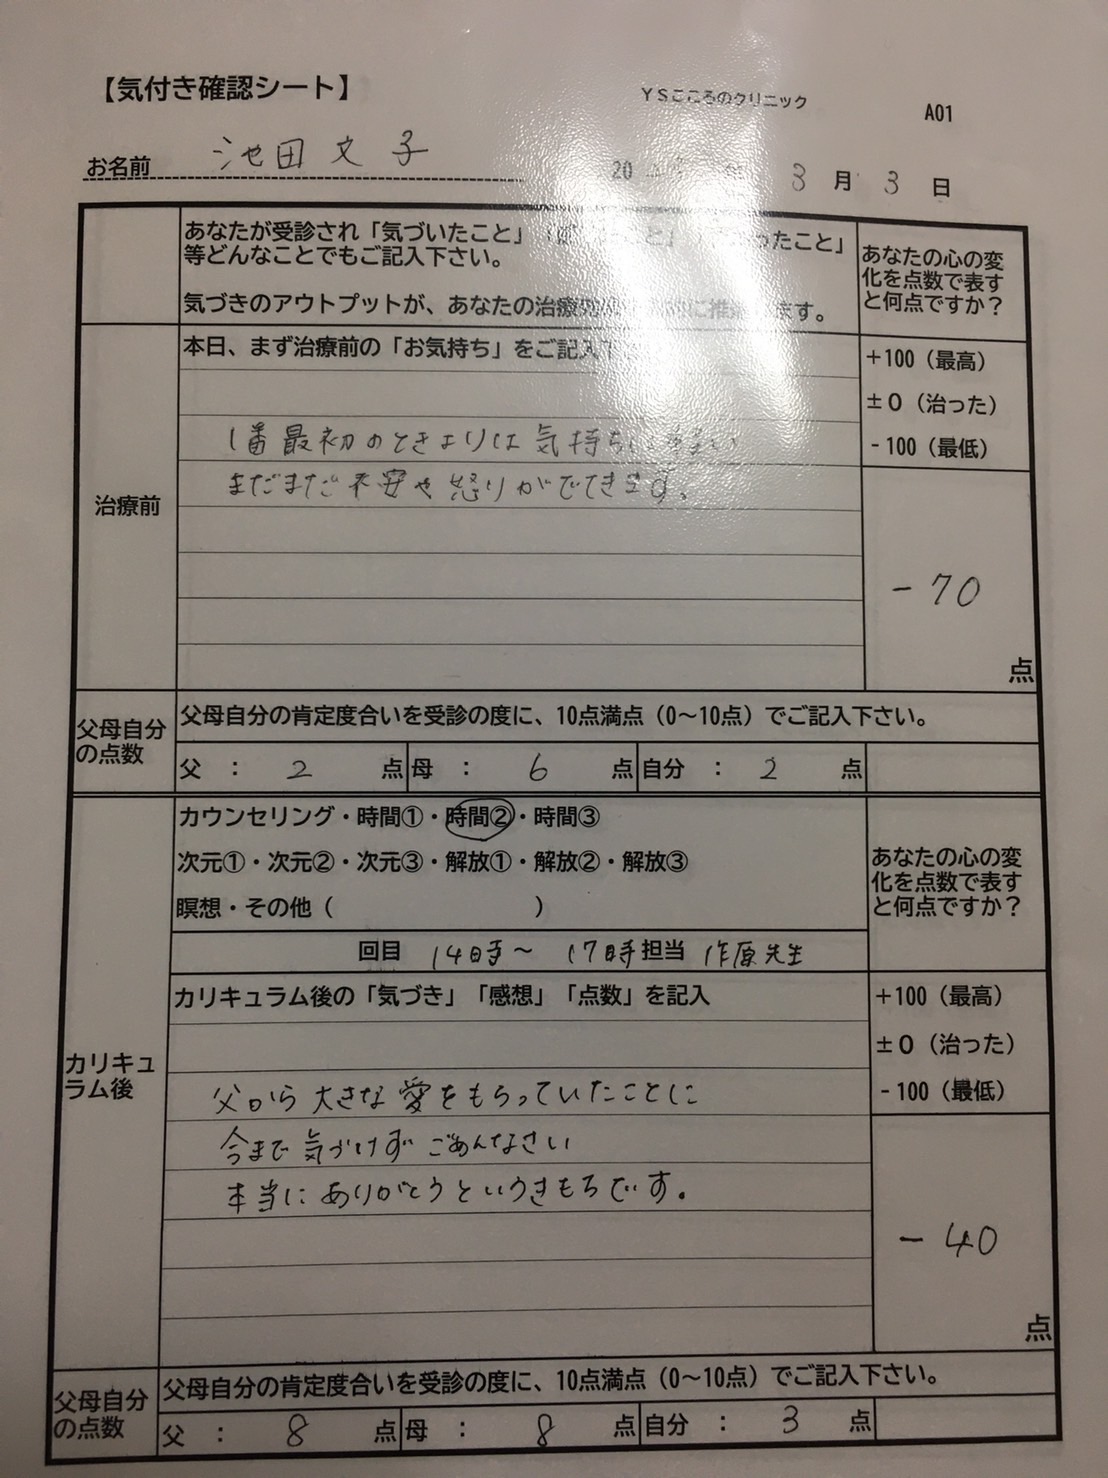 【気付き確認シート】
YSこころのクリニック
A01
お名前 池田文子
20 年 3月3日
あなたが受診され「気づいたこと」「 こと」 ったこと」
等どんなことでもご記入下さい。
気づきのアウトプットが、あなたの治療 に推 ます。
あなたの心の変
化を点数で表す
と何点ですか?
治療前
本日、まず治療前の「お気持ち」をご記入下
1番最初のときよりは気持ち
まだまだ不安や怒りがでてきます。
+100(最高)
±0(治った)
-100(最低)
-70
点
父母自分
の点数
父母自分の肯定度合いを受診の度に、10点満点(0〜10点)でご記入下さい。
父 : 2 点 母 : 6 点 自分 : 2 点
カリキュ
ラム後
カウンセリング・時間①・時間②・時間③
次元①・次元②・次元③・解放①・解放②・解放③
瞑想・その他( )
あなたの心の変
化を点数で表す
と何点ですか?
回目 14時〜 17時 担当 作原先生
カリキュラム後の「気づき」「感想」「点数」を記入
父から大きな愛をもらっていたことに
今まで気づけずごめんなさい
本当にありがとうというきもちです。
+100(最高)
±0(治った)
-100(最低)
-40
点
父母自分
の点数
父母自分の肯定度合いを受診の度に、10点満点(0〜10点)でご記入下さい。
父 : 8 点 母 : 8 点 自分 : 3 点